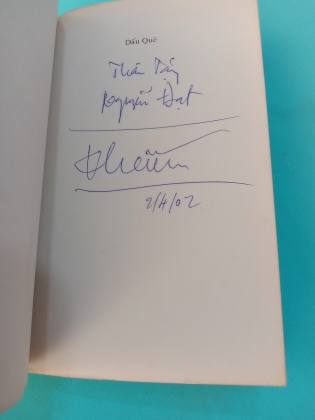 Dấu Quê
Thân Tặng
Nguyễn Đạt
2/4/02